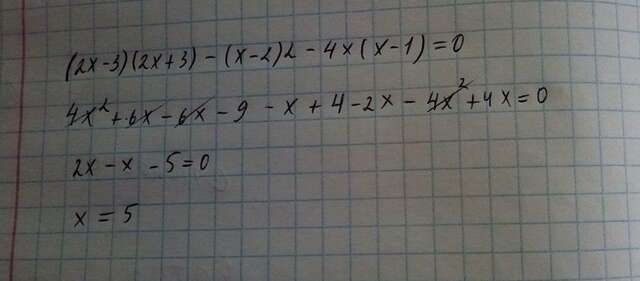 (2x-3)(2x+3) - (x-2)2 - 4x(x-1)=0
4x²+6x-6x-9 - x + 4-2x - 4x²+4x=0
2x-x -5=0
x = 5